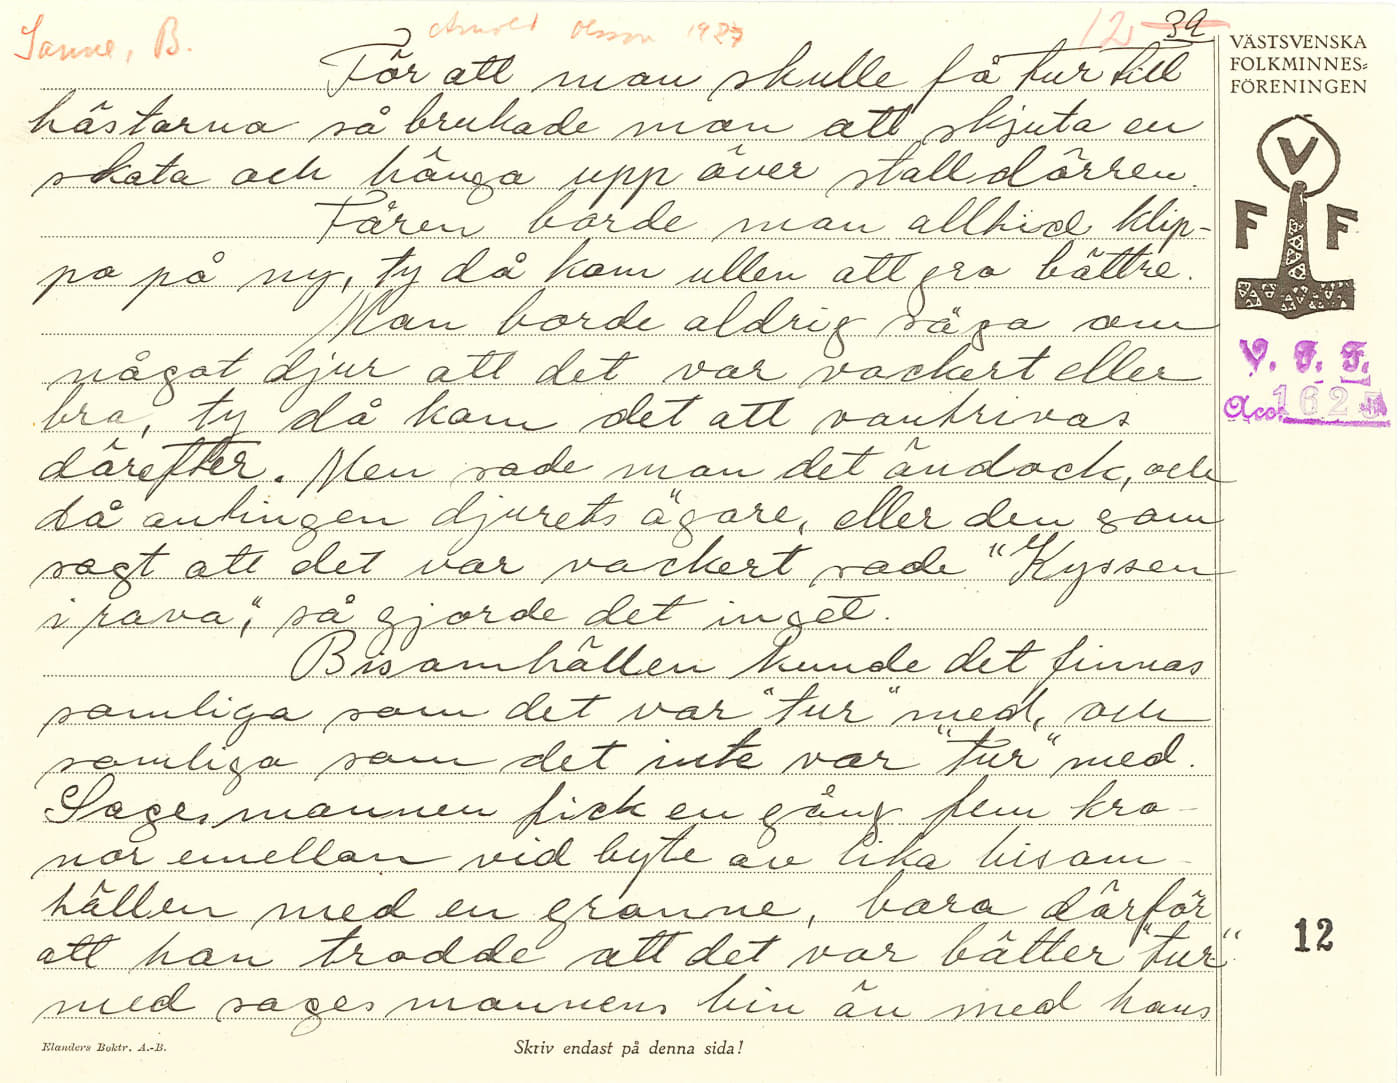 Sanne, B.
Arnold Olsson 1927
12
39
För att man skulle få tur till
hästarna så brukade man att skjuta en
skata och hänga upp över stalldörren.
Fåren borde man alltid klip-
pa på ny, ty då kom ullen att gro bättre.
Man borde aldrig säga om
något djur att det var vackert eller
bra, ty då kom det att vantrivas
därefter. Men sade man det ändock, och
då antingen djurets ägare, eller den som
sagt att det var vackert sade "Kyssen
i rava", så gjorde det inget.
Bisamhällen kunde det finnas
somliga som det var "tur" med, och
somliga som det inte var "tur" med.
Sagesmannen fick en gång fem kro-
nor emellan vid byte av lika bisam-
hällen med en granne, bara därför
att han trodde att det var bätter "tur"
med sagesmannens bin än med hans
VÄSTSVENSKA
FOLKMINNES-
FÖRENINGEN
V
F F
V. F. F.
Acc.
12
Elanders Boktr. A.-B.
Skriv endast på denna sida!